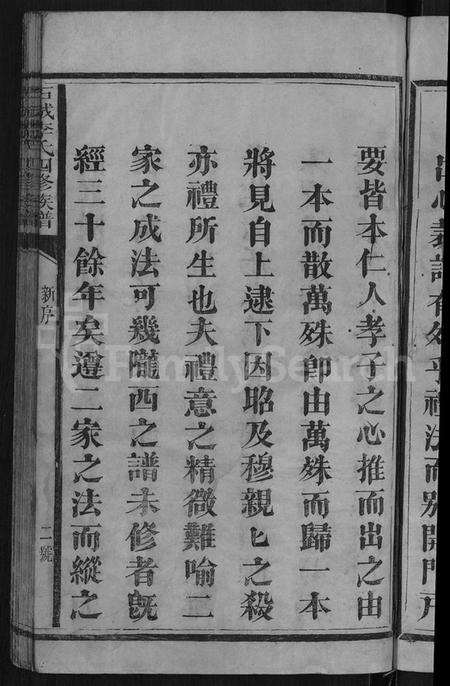 要皆本仁人孝子之心推而出之由
一本而散萬殊卽由萬殊而歸一本
將見自上逮下因昭及穆親匕之殺
亦禮所生也夫禮意之精微難喻二
家之成法可幾隴西之譜未修者既
經三十餘年矣遵二家之法而縱之
石城李氏四修族譜
新序
二號
FamilySearch